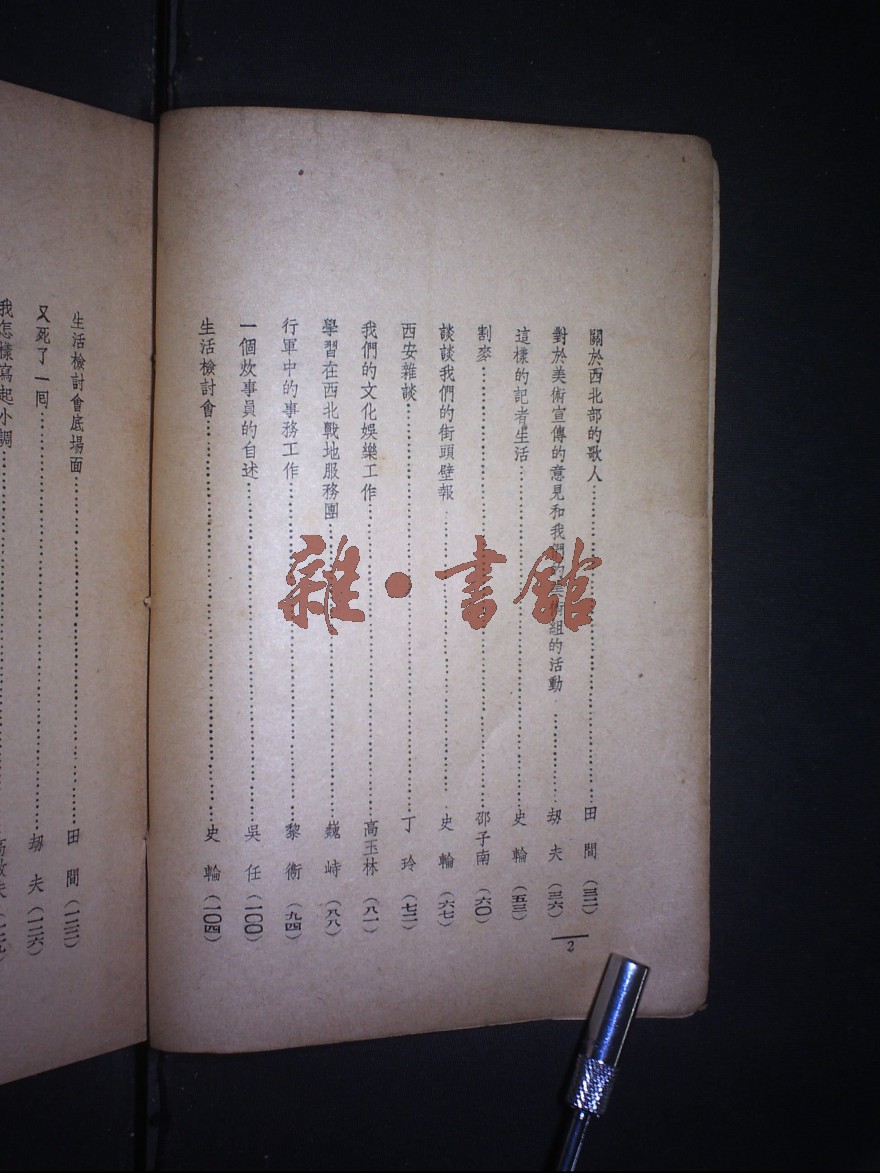 關於西北部的歌人 田間 (三二)
對於美術宣傳的意見和我們的美術組的活動 劫夫 (三六)
這樣的記者生活 史輪 (五三)
割麥 邵子南 (六〇)
談談我們的街頭壁報 史輪 (六七)
西安雜談 丁玲 (七二)
我們的文化娛樂工作 高玉林 (八一)
學習在西北戰地服務團 巍峙 (八八)
行軍中的事務工作 黎衡 (九四)
一個炊事員的自述 吳任 (一〇〇)
生活檢討會 史輪 (一〇四)
2
生活檢討會底場面 田間
又死了一囘 劫夫 (一二六)
我怎樣寫起小調
雜·書館